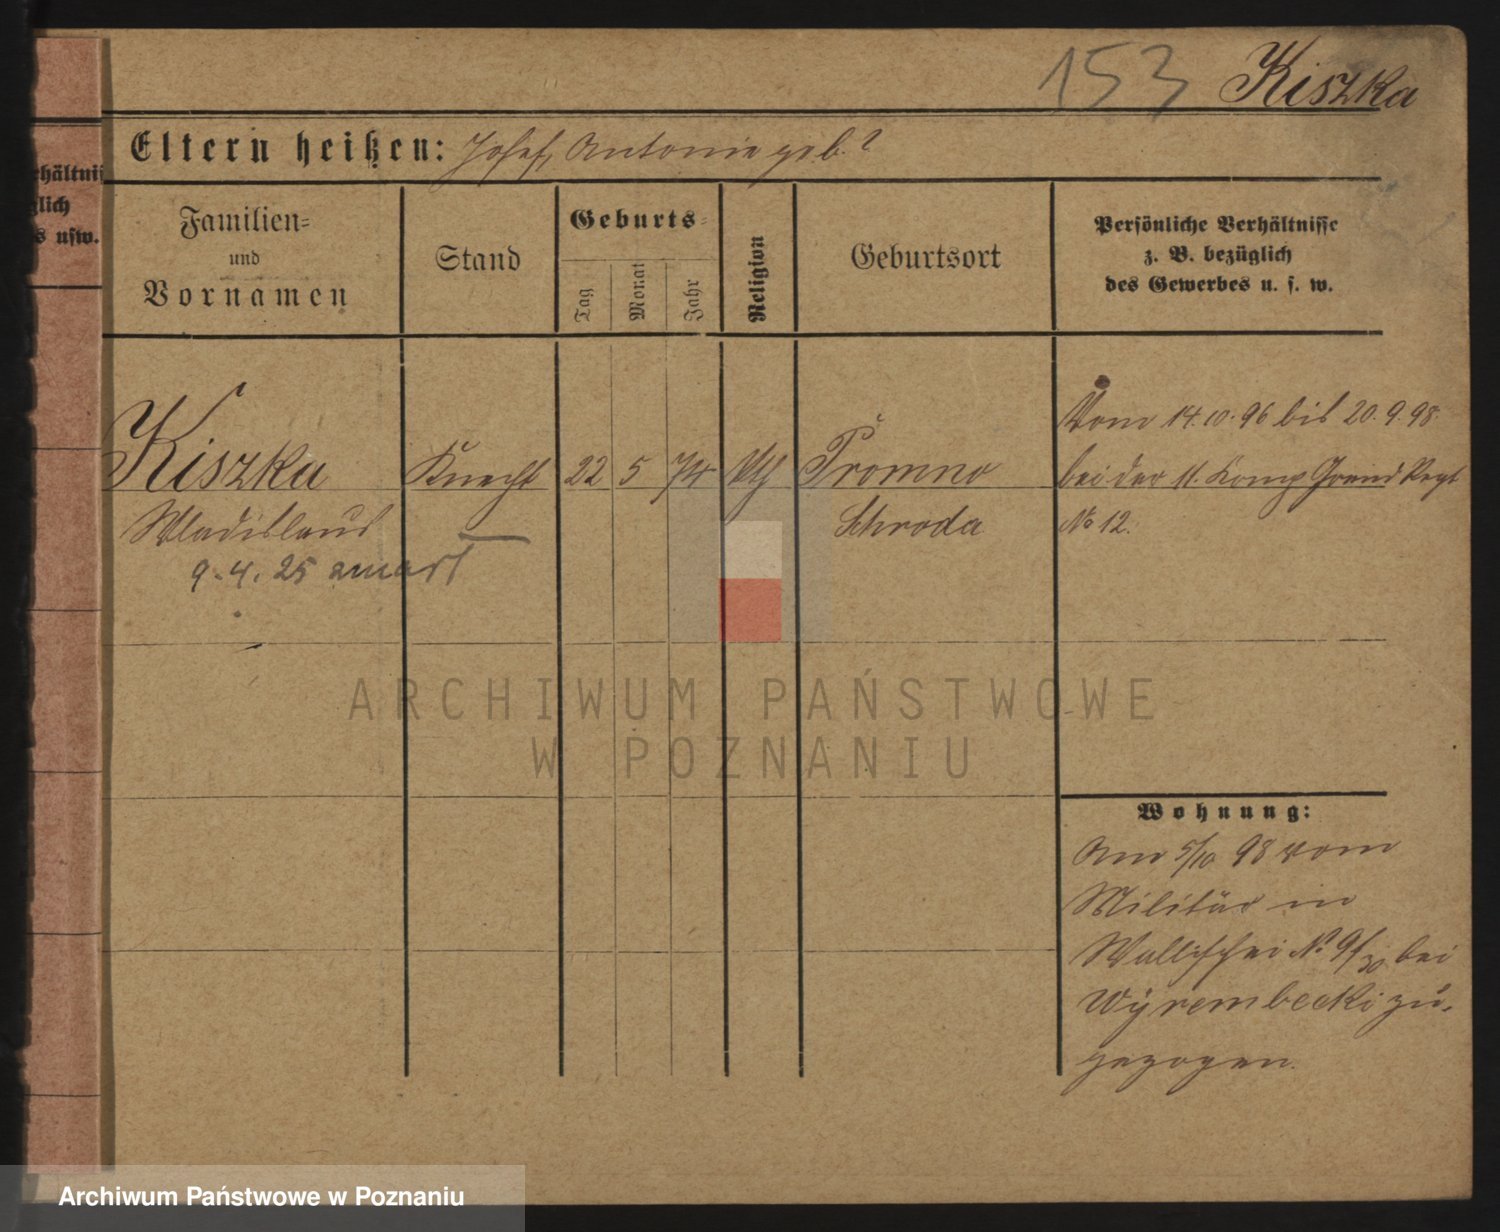 153 Kiszka
Eltern heißen: Josef, Antonie geb. ?
rhältnis
glich
s usw.
Familien-
und
Vornamen
Stand
Geburts-
Tag
Monat
Jahr
Religion
Geburtsort
Persönliche Verhältnisse
z. B. bezüglich
des Gewerbes u. s. w.
Kiszka Knecht 22 5 74 Promno
Wladislaus Schroda
9.4.25 zmarł
Vom 14.10.96 bis 20.9.98
bei der 11. Komp Grend Regt
No 12.
Wohnung:
Am 5/10 98 vom
Militär in
Wallischei No 9/30 bei
Wyrembecki zu-
gezogen.
ARCHIWUM PAŃSTWOWE
W POZNANIU
Archiwum Państwowe w Poznaniu